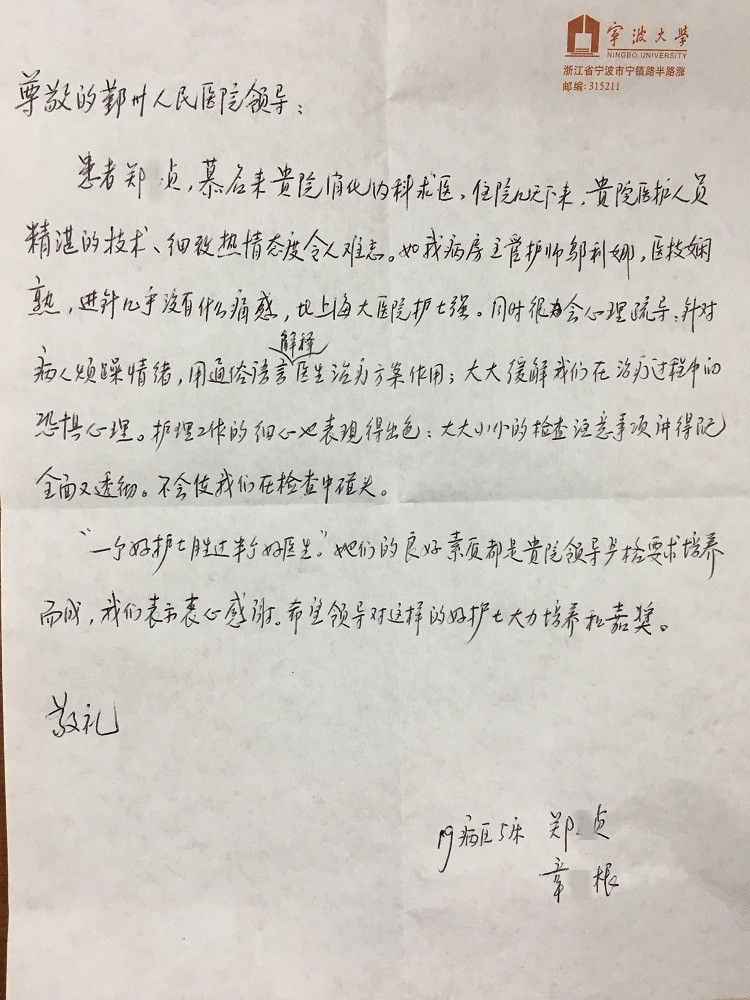 寧波大學
NINGBO UNIVERSITY
浙江省宁波市宁镇路半路涨
邮编:315211
尊敬的鄞州人民医院领导：
患者郑 贞，慕名来贵院消化内科求医，住院几天下来，贵院医护人员
精湛的技术、细致热情态度令人难忘。如我病房主管护师邬利娜，医技娴
熟，进针几乎没有什么痛感，比上海大医院护士强。同时很会心理疏导：针对
解释
病人烦躁情绪，用通俗语言医生治疗方案作用；大大缓解我们在治疗过程中的
恐惧心理。护理工作的细心也表现得出色：大大小小的检查注意事项讲得既
全面又透彻。不会使我们在检查中碰头。
“一个好护士胜过半个好医生。”她们的良好素质都是贵院领导严格要求培养
而成，我们表示衷心感谢。希望领导对这样的好护士大力培养和嘉奖。
敬礼
19病区5床 郑 贞
章 根